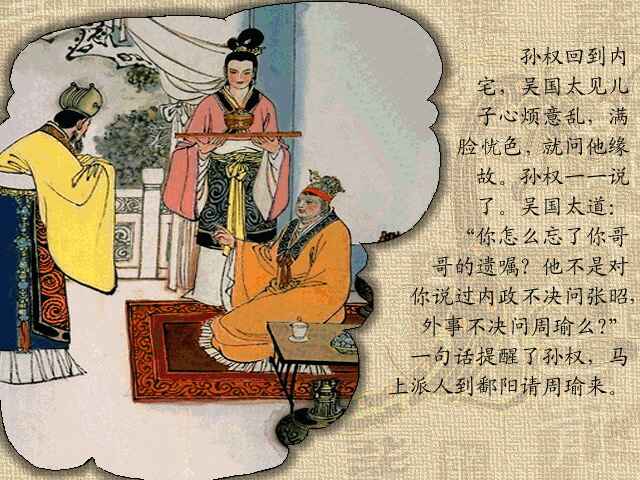 孙权回到内
宅，吴国太见儿
子心烦意乱，满
脸忧色，就问他缘
故。孙权一一说
了。吴国太道：
“你怎么忘了你哥
哥的遗嘱？他不是对
你说过内政不决问张昭，
外事不决问周瑜么？”
一句话提醒了孙权，马
上派人到鄱阳请周瑜来。